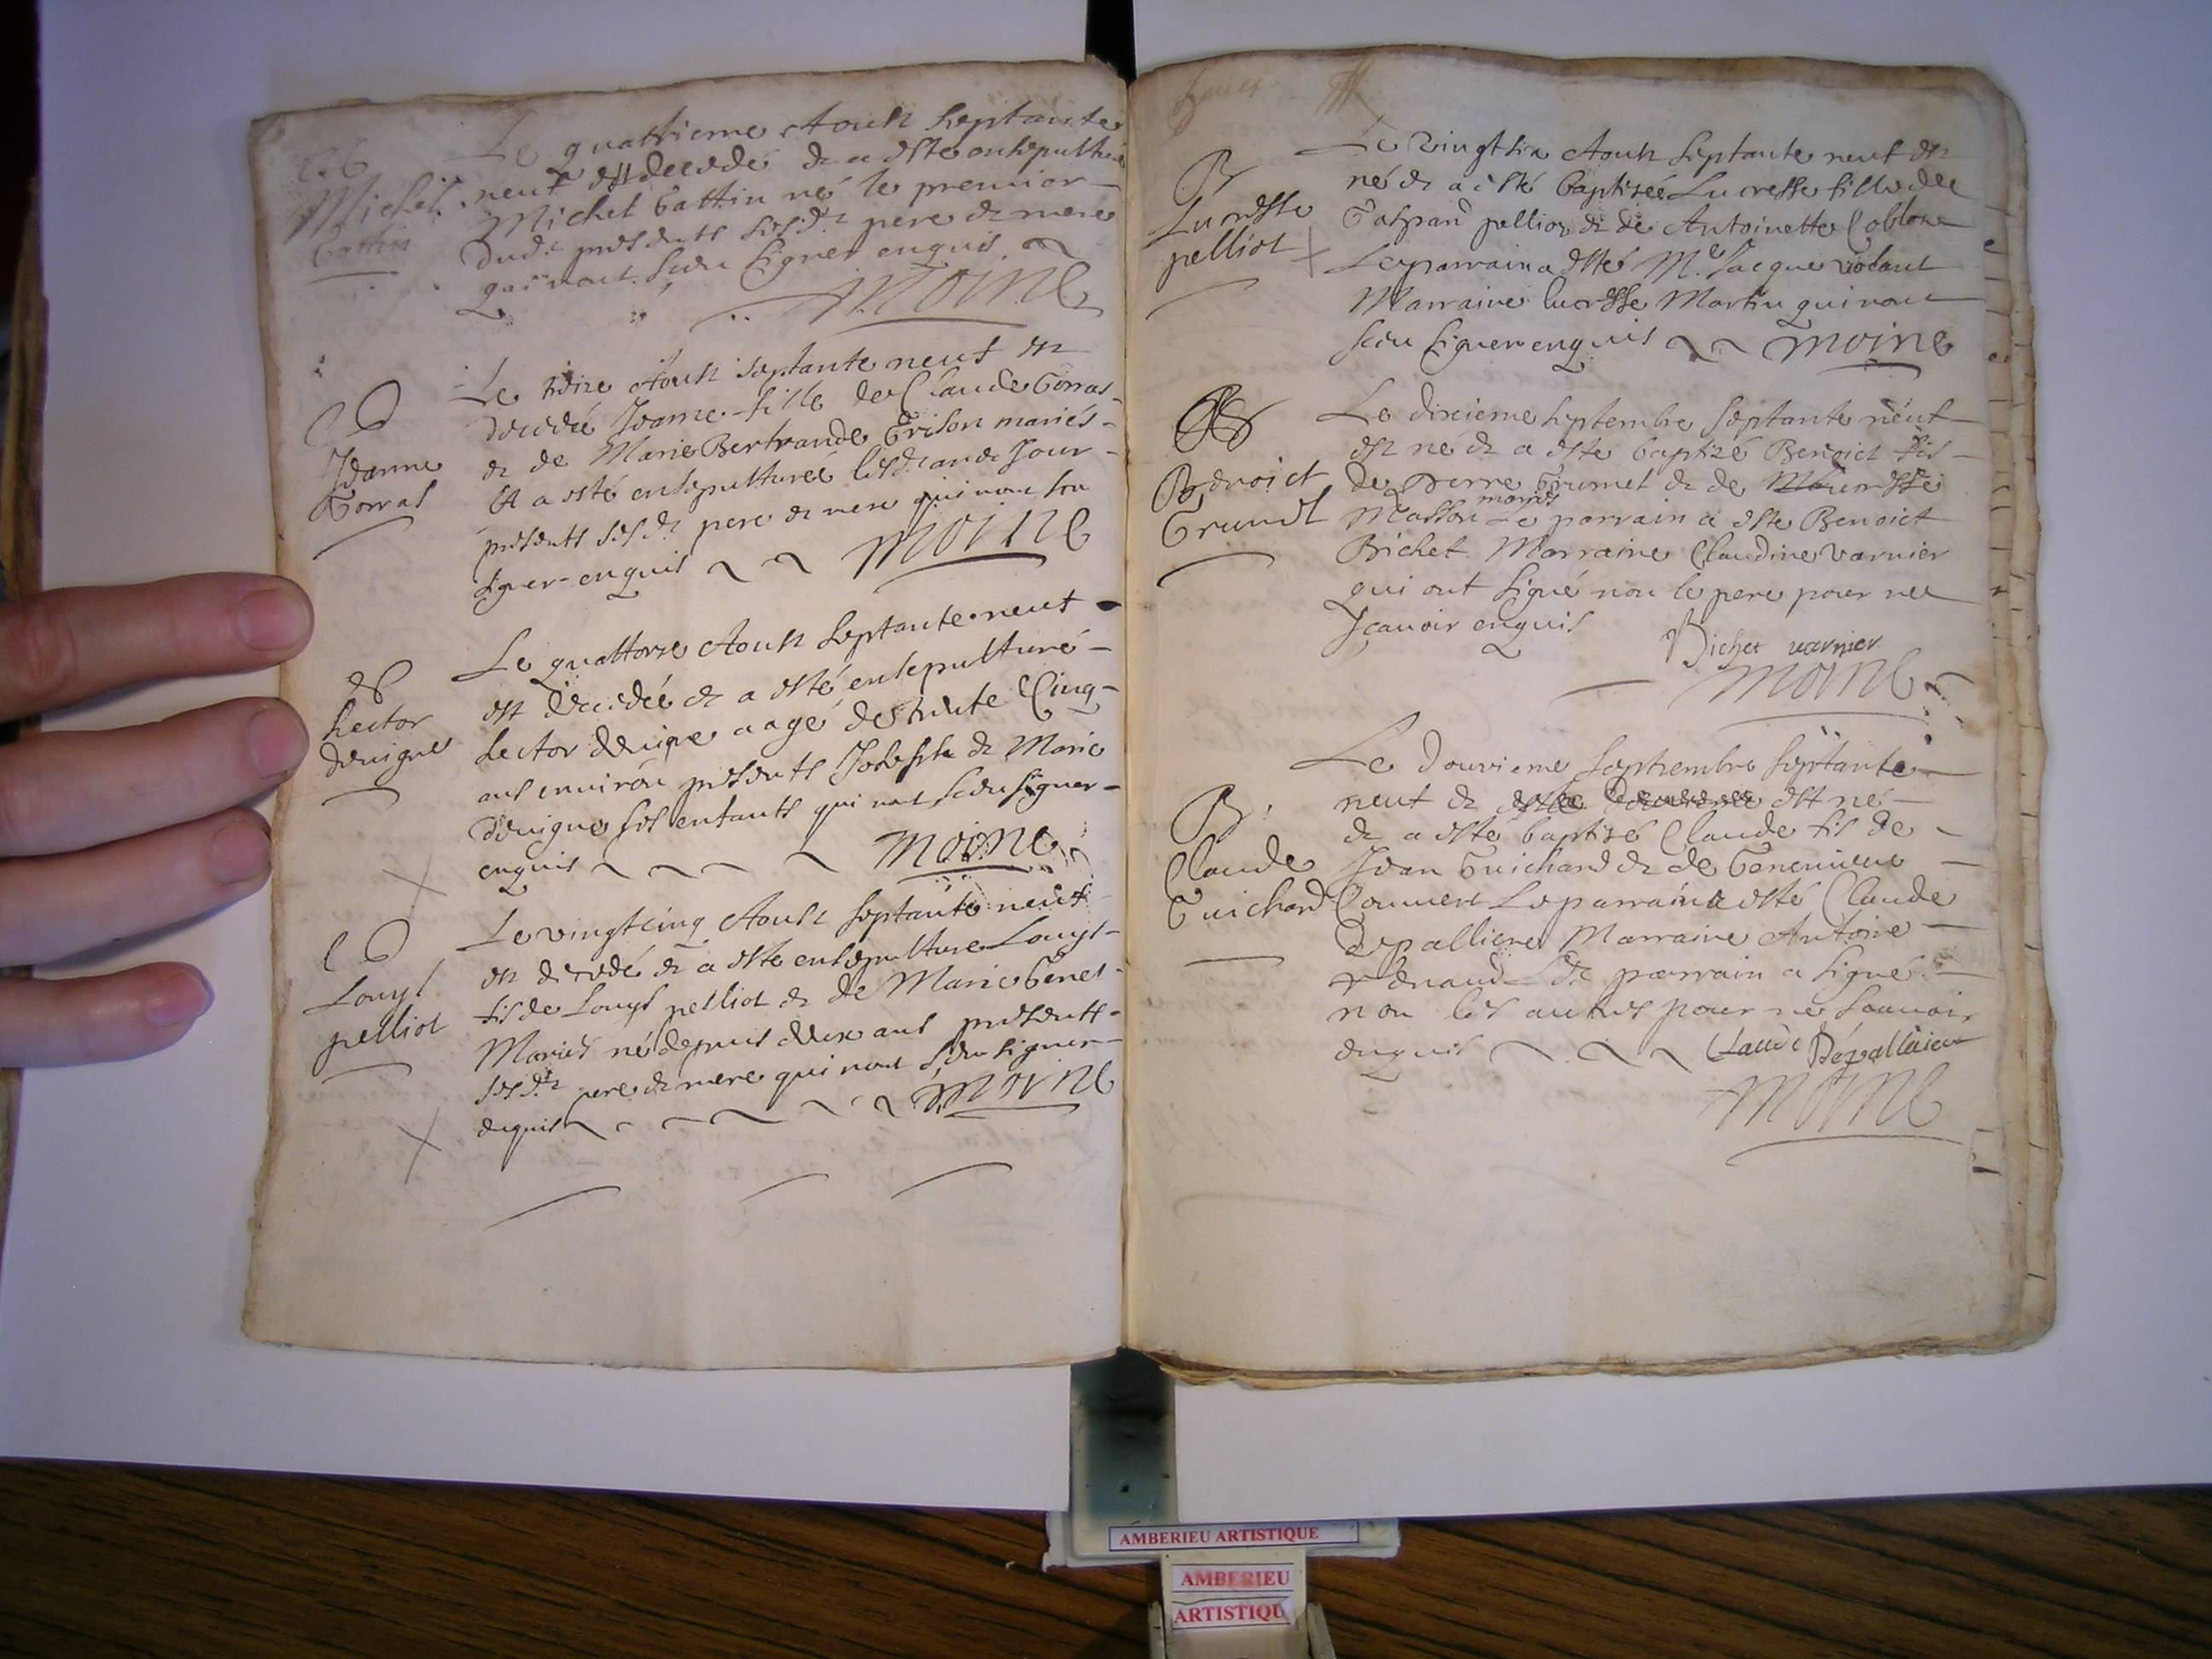 Le quattrieme Aoust septante
neuf est decedé & a esté ensepulturé
Michel Gattin né le premier
dud.t presents sesd.ts pere & mere
qui n'ont sceu signer enquis
Moine
Michel
Gattin
Le treize Aoust septante neuf est
decedée Jeanne fille de Claude Gorras
& de Marie Bertrande Grison mariés
et a esté ensepulturée lesd.t an & jour
presents sesd.ts pere & mere qui n'ont sceu
signer enquis Moine
Jeanne
Gorras
Le quattorze Aoust septante neuf
est decedée & a esté ensepulturé
hector devigne aagé de trente Cinq
ans environ presents Joseph & Marie
devigne ses enfants qui n'ont sceu signer
enquis Moine
hector
devigne
Le vingt cinq Aoust septante neuf
est decedé & a esté ensepulturé Louys
fis de Louys pelliot & de Marie Genet
Mariés né depuis deux ans presents
sesd.ts pere & mere qui n'ont sceu signer
enquis Moine
Louys
pelliot
Le vingt six Aoust septante neuf est
né & a esté baptisée Lucresse fille de
Gaspard pelliot & de Antoinette
Le parrain a esté M.e Jacque volant
Marraine lucresse Martin qui n'ont
sceu signer enquis Moine
B
Lucresse
pelliot
Le dixieme septembre septante neuf
est né & a esté baptizé Benoict fis
de pierre Grumet & de
Masson mariés Le parrain a esté Benoict
Bichet Marraine Claudine varnier
qui ont signé non le pere pour ne
sçavoir enquis
Bichet varnier
Moine
B
Benoict
Grumet
Le douzieme septembre septante
neuf & est né
& a esté baptisé Claude fis de
Jean Guichard & de Genevieve
Convert Le parrain a esté Claude
Depalliere Marraine Antoine
renaud Led.t parrain a signé
non les autres pour ne scavoir
enquis Claude Depalliere
Moine
B
Claude
Guichard
AMBERIEU ARTISTIQUE
AMBERIEU
ARTISTIQU